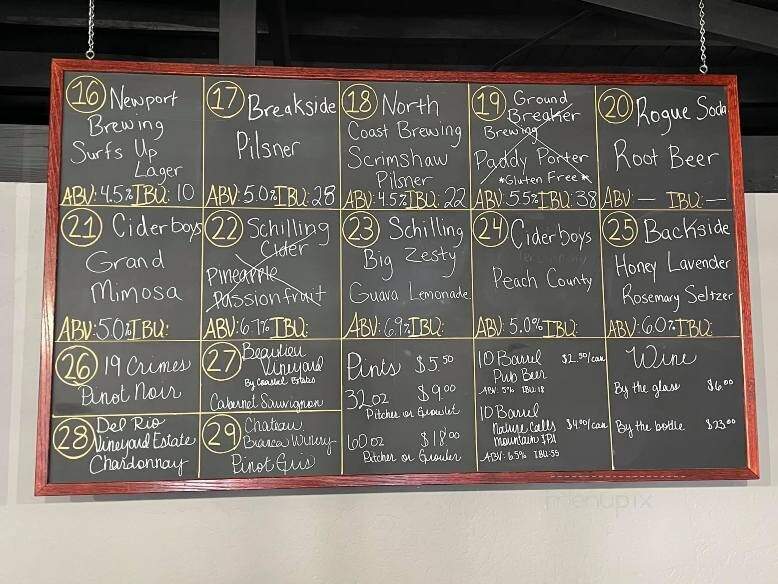 16 Newport
Brewing
Surfs Up
Lager
ABV: 4.5% IBU: 10
17 Breakside
Pilsner
ABV: 5.0% IBU: 28
18 North
Coast Brewing
Scrimshaw
Pilsner
ABV: 4.5% IBU: 22
19 Ground
Breaker
Brewing
Paddy Porter
*Gluten Free*
ABV: 5.5% IBU: 38
20 Rogue Soda
Root Beer
ABV: — IBU: —
21 Ciderboys
Grand
Mimosa
ABV: 5.0% IBU:
22 Schilling
Cider
Pineapple
Passionfruit
ABV: 6.7% IBU:
23 Schilling
Big Zesty
Guava Lemonade
ABV: 6.9% IBU:
24 Ciderboys
Peach County
ABV: 5.0% IBU:
25 Backside
Honey Lavender
Rosemary Seltzer
ABV: 6.0% IBU:
26 19 Crimes
Pinot Noir
27 Beaulieu
Vineyard
By Coastal Estates
Cabernet Sauvignon
28 Del Rio
Vineyard Estate
Chardonnay
29 Chateau
Bianca Winery
Pinot Gris
Pints $5.50
32 oz $9.00
Pitcher or Growlet
60 oz $18.00
Pitcher or Growler
10 Barrel $2.50/can
Pub Beer
ABV: 5% IBU: 18
10 Barrel
Nature Calls $4.00/can
Mountain IPA
ABV: 6.5% IBU: 55
Wine
By the glass $6.00
By the bottle $23.00
menupix